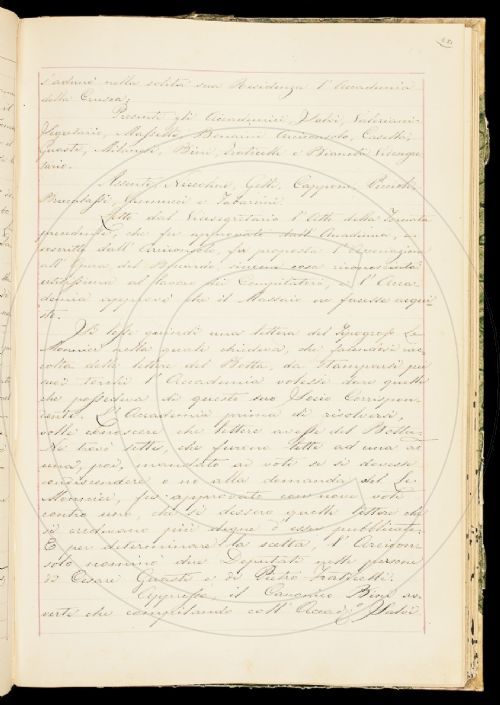 s'adunò nella solita sua Residenza l'Accademia
della Crusca;
Presenti gli Accademici, Salvi, Valeriani
Segretario, Masselli, Bencini Arciconsolo, Caselli,
Guasti, Milanesi, Bini, Fraticelli e Bianchi Vicesegre-
tario.
Assenti, Nuccolini, Gelli, Capponi,
Brucalassi, Vannucci e Tabarrini.
Letto dal Vicesegretario l'Atto della Tornata
precedente, che fu approvato dall'Accademia,
dall'Arciconsolo, fu proposta l'Associazione
all'Opera del sincera cosa riconosciuta
utilissima al lavoro dei Compilatori, e l'Acca-
demia approvò che il Massaio ne facesse acqui-
sto.
Si lesse quindi una lettera del Tipografo Le
Monnier nella quale chiedeva, che
colta delle lettere del Botta, da stamparsi per
suoi torchi l'Accademia volesse dare quelle
che possedeva di questo suo Socio Corrispon-
dente. L'Accademia prima di risolversi,
volle conoscere che lettere avesse del Botta.
Ne trovò sette, che furono lette ad una ad
una; poi, mandato ai voti se si dovesse
condiscendere o no alla domanda del Le
Monnier, fu approvato con nove voti
contro uno, che si dessero quelle lettere che
si credevano più degne d'esser pubblicate.
E per determinare la scelta, l'Arcicon-
solo nominò due Deputati nelle persone
di Cesare Guasti e di Pietro Fraticelli.
Appresso, il Canonico Bini av-
verte che compilando coll'Accad.º Salvi